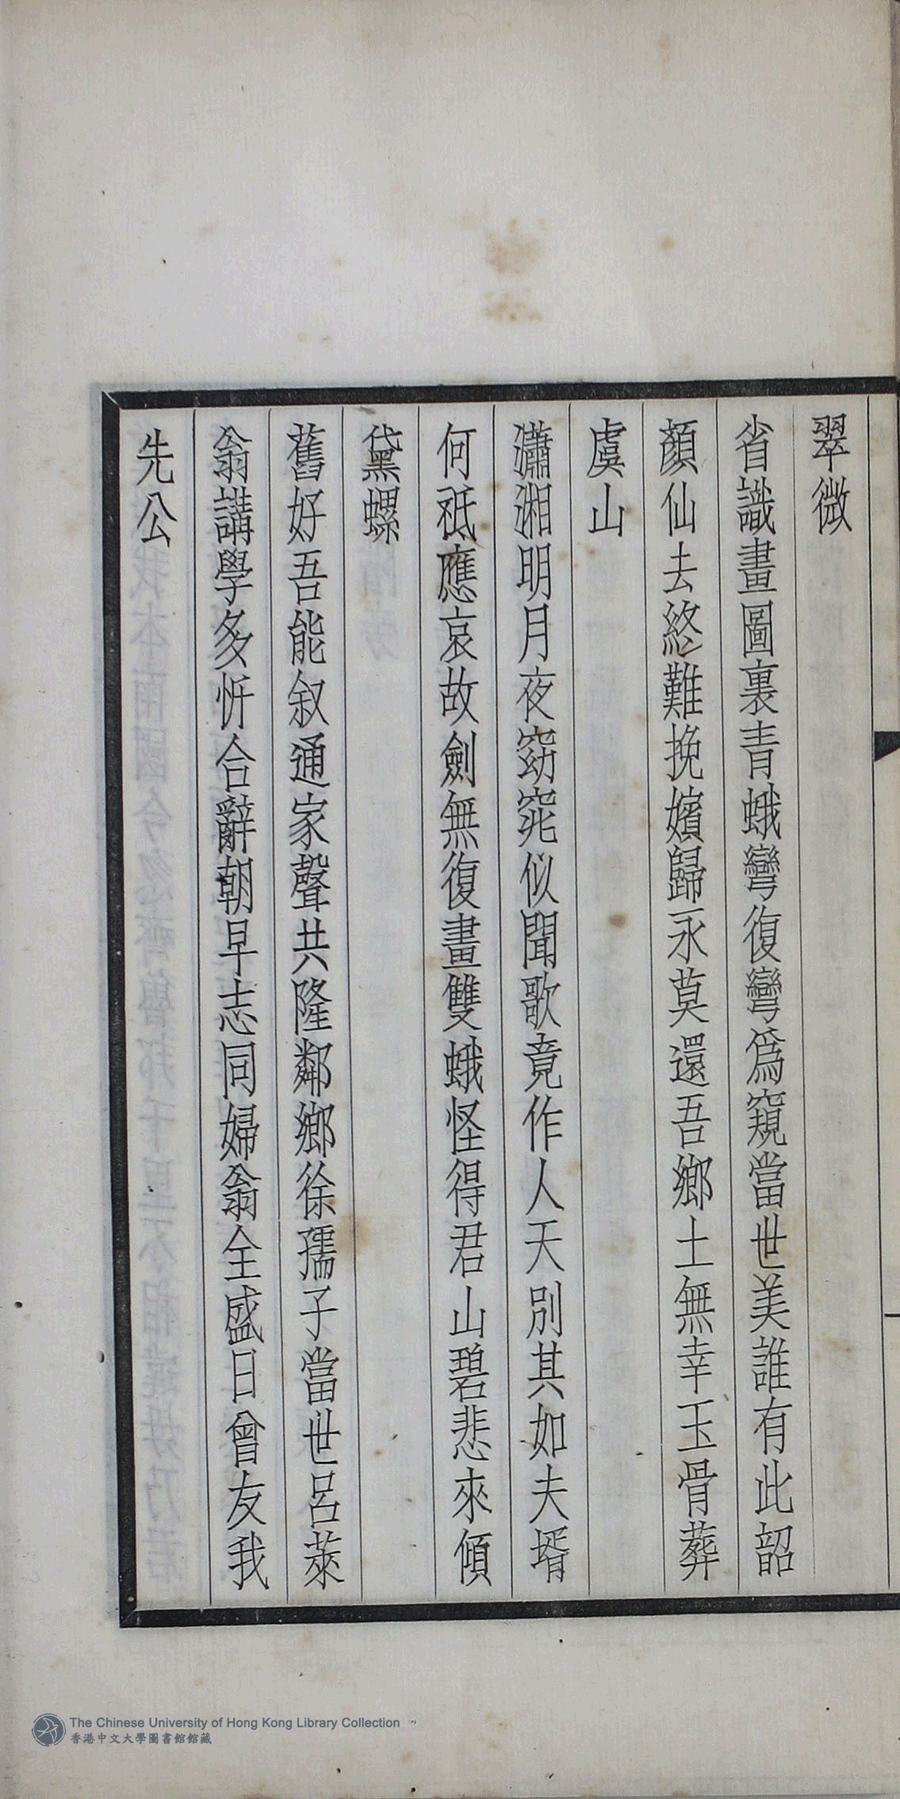 翠微
省識畫圖裏青蛾彎復彎為窺當世美誰有此韶
顏仙去終難挽嬪歸永莫還吾鄉土無幸玉骨葬
虞山
瀟湘明月夜窈窕似聞歌竟作人天別其如夫壻
何祇應哀故劍無復畫雙蛾怪得君山碧悲來傾
黛螺
舊好吾能叙通家聲共隆鄰鄉徐孺子當世呂萊
翁講學多忻合辭朝早志同婦翁全盛日曾友我
先公
The Chinese University of Hong Kong Library Collection
香港中文大學圖書館館藏